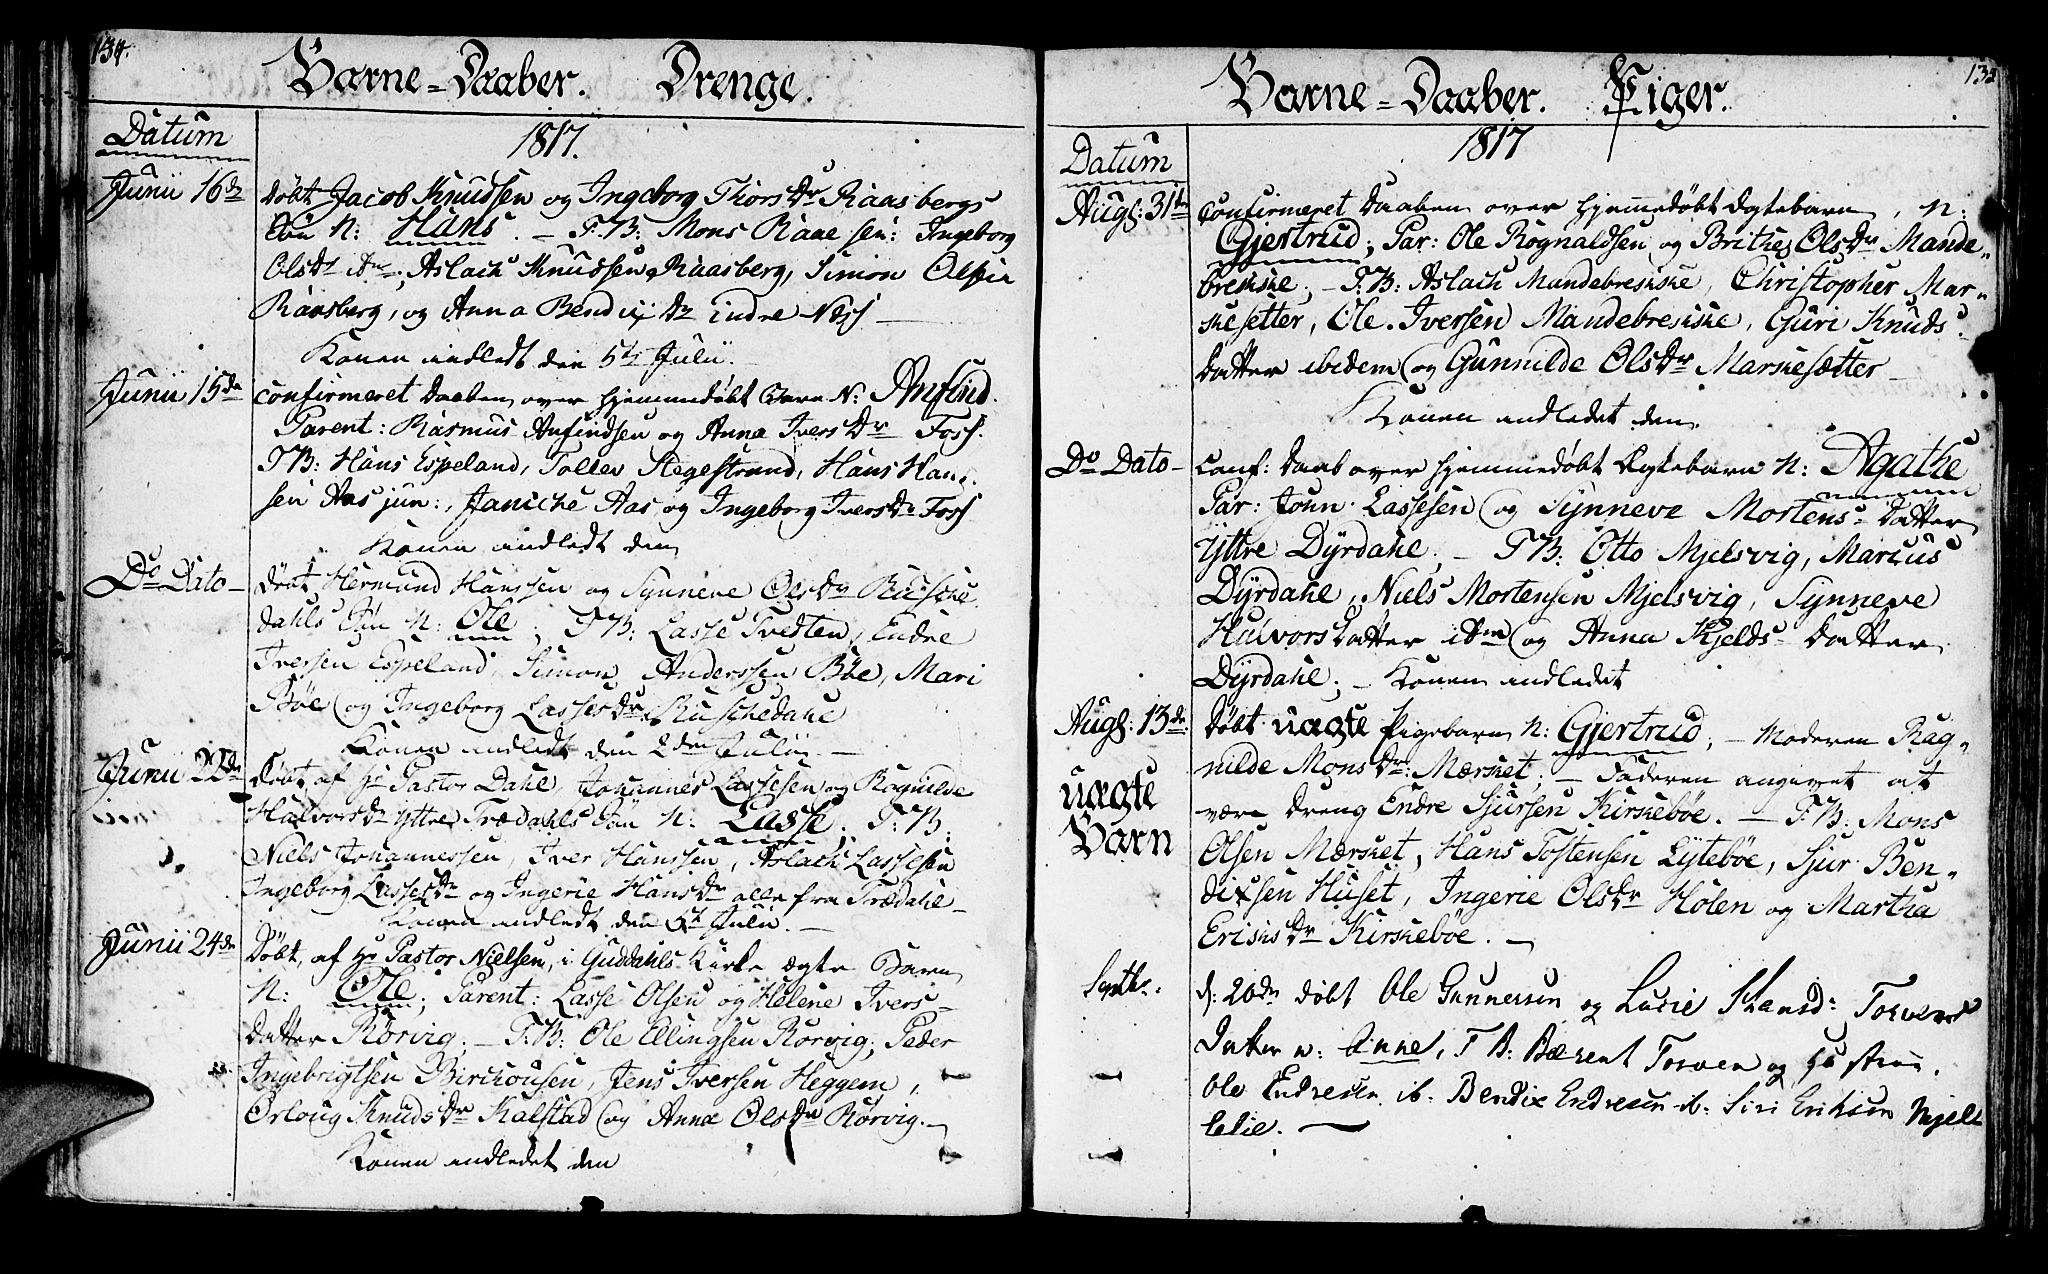 134.
Barne=Daaber. Drenge.
Datum
1817.
Junii 16de
Døbt Jacob Knudsen og Ingeborg ThorsDr Raasbergs
Søn N: Hans. _ F.B: Mons Raae sen: Ingeborg
OlsDr ibm, Aslach Knudsen Raasberg, Simon Olsen
Raasberg, og Anna Bendix Dr Indre Næss _
Konen indledt den 5te Julii.
Junii 15de
confirmeret Daaben over hjemmedøbt Barn N: Anfind.
Parent: Rasmus Anfindsen og Anna IversDr Foss.
F.B: Hans Espeland, Tollev Stegestrand, Hans Han-
sen Aas jun:, Janiche Aas og Ingeborg IversDr Foss
Konen indledt den
Do Dato _
Døbt Hermund Hanssen og Synneve OlsDr Ruske-
dahls Søn N: Ole; F.B: Lasse Tvedten, Endre
Iversen Espeland, Simon Anderssen Bøe, Mari
Bøe og Ingeborg LassesDr Ruschedahl
Konen indledt den 2den Julii. _
Junii 22de
Døbt af Hr Pastor Dahl, Johannes Lassesen og Rognilde
HalvorsDr Yttre Trædahls Søn N: Lasse; F:B.
Niels Johannessen, Iver Hanssen, Aslach Lassesen
Ingeborg LassesDr og Ingerie HansDr alle fra Trædahl _
Konen indledt den 6te Julii. _
Junii 24de
Døbt, af Hr Pastor Nielsen, i Guddahls Kirke ægte Barn
N: Ole; Parent: Lasse Olsen og Helene Ivers-
Datter Rørvig; _ F.B: Ole Ellingsen Rørvig, Peder
Ingebrigtsen Birchousen, Jens Iversen Heggem,
Orloug KnudsDr Kalstad og Anna OlsDr Rørvig. _
Konen indledet den
132
Barne=Daaber. Piger.
Datum
1817
Augs: 31te
Confirmeret Daaben over hjemmedøbt Ægtebarn, N:
Gjertrud; Par: Ole Rognaldsen og Brithe OlsDr Mande-
brekke; _ F.B: Aslach Mandebrekke, Christopher Mar-
kesetter, Ole Iversen Mandebrekke, Guri Knuds-
Datter ibidem og Gunnilde OlsDr Markesætter _
Konen indledet den
Do Dato _
Conf: Daab over hjemmedøbt Ægtebarn N: Agathe
Par: Joun Lassesen og Synneve Mortens-Datter
Yttre Dyrdahl; _ F.B: Otto Mjelsvig, Marcus
Dyrdahl, Niels Mortensen Mjelsvig, Synneve
HalvorsDatter ibm og Anna Kjelds-Datter
Dyrdahl; _ Konen indledet
Augs: 13de:
uægte
Barn
Døbt uægte Pigebarn N: Gjertrud; _ Moderen Rag-
nilde MonsDr: Mærket; _ Faderen angivet at
være Dreng Endre Sjursen Kirkebøe. _ F.B: Mons
Olsen Mærket, Hans Tostensen Lytebøe, Sjur Ben-
dixsen Huset, Ingerie OlsDr Holen og Martha
EricksDr Kirkebøe. _
Septbr.
d: 20de døbt Ole Gunnersen og Lucie Hansd: Torvens
Datter n: Anne, F B: Berent Torven og Hustru.
Ole Endresen ib. Bendix Endresen ib: Siri Eriksen Mjell
lelie. _